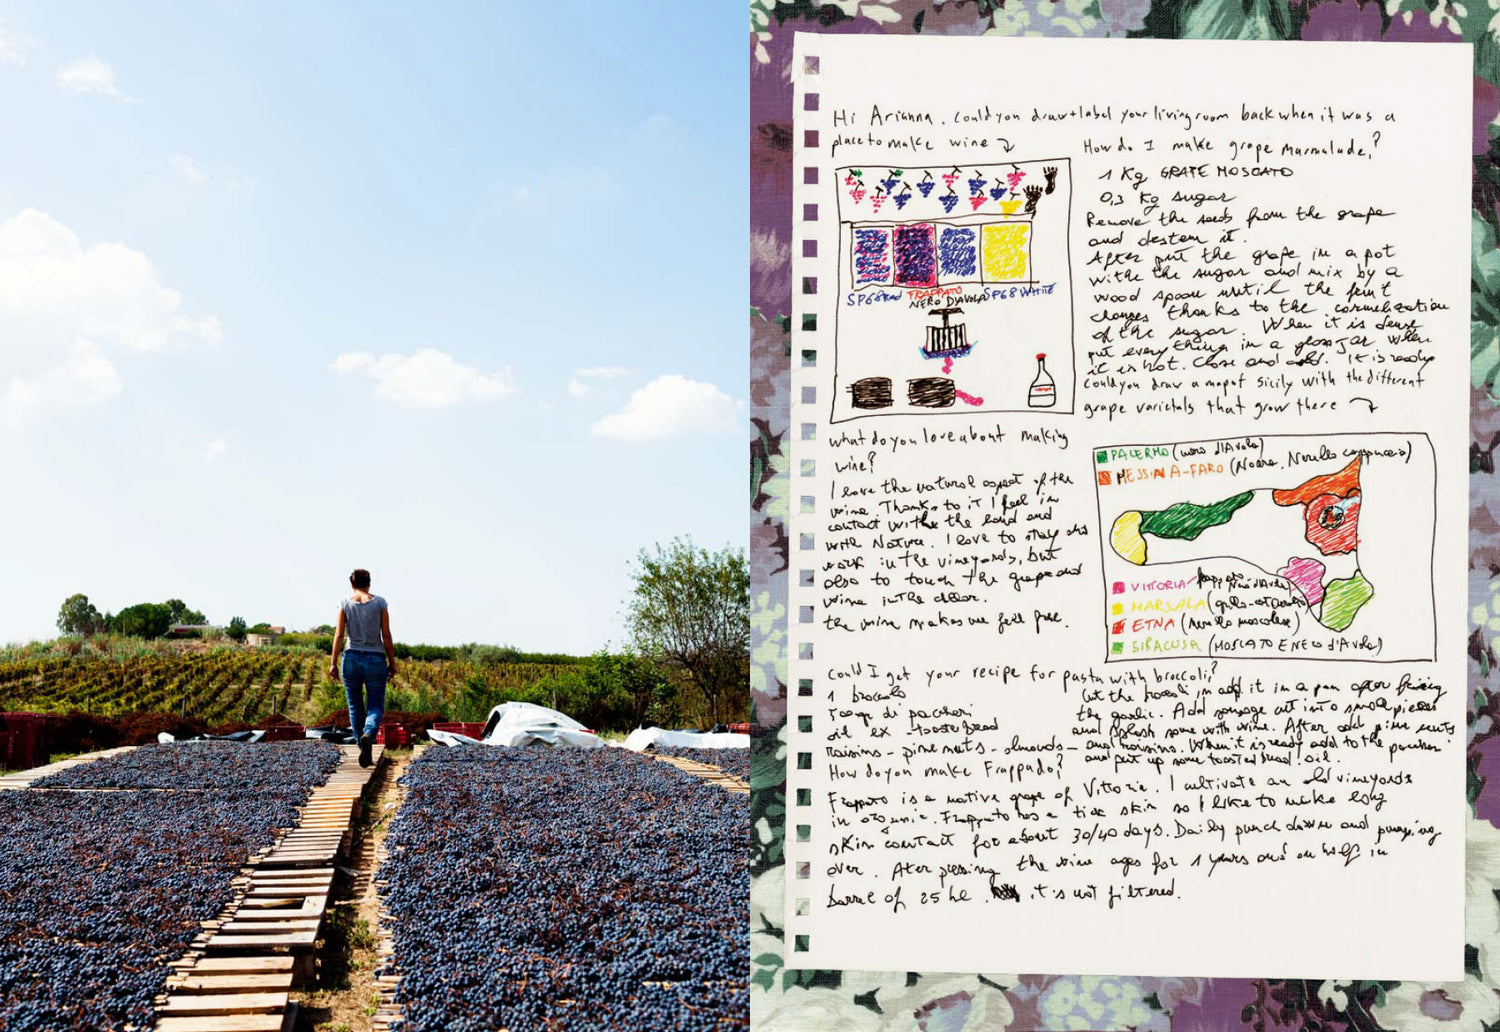 Hi Arianna. Could you draw + label your living room back when it was a
place to make wine
SP68 Red FRAPPATO SP68 WHITE
NERO D'AVOLA
How do I make grape marmalade?
1 Kg GRAPE MOSCATO
0,3 Kg sugar
Remove the seeds from the grape
and destem it.
After put the grape in a pot
withe the sugar and mix by a
wood spoon until the fruit
changes thanks to the
of the sugar. When it is dense
put everything in a glass jar when
it is hot. Close and . It is ready
Could you draw a map of Sicily with the different
grape varietals that grow there
PALERMO (nero d'Avola)
MESSINA-FARO (Nocera, Nerello cappuccio)
VITTORIA frappato Nero d'Avola)
MARSALA (grillo-
ETNA (nerello mascalese)
SIRACUSA (MOSCATO E NERO d'AVOLA)
What do you love about making
wine?
I love the natural aspect of the
wine. Thanks to it I feel in
contact withe the land and
with Nature. I love to stay and
work in the vineyards, but
also to touch the grape and
wine in the cellar.
the wine makes me feel free.
Could I get your recipe for pasta with broccoli?
1 broccolo
di paccheri
oil ex - toaste bread
raisins - pine nuts - almonds -
Cut the broccoli in add it in a pan after frieing
the garlic. Add sausage cut into small pieces
and splash some with wine. After add pine nuts
and raisins. When it is ready add to the paccheri
and put up some toasted bread. oil.
How do you make Frappado?
Frappato is a native grape of Vittoria. I cultivate an old vineyards
in organic. Frappato has a skin so I like to make long
skin contact for about 30/40 days. Daily punch down and pumping
over. Ater pressing the wine ages for 1 years and on half in
barrel of 25 hl. it's not filtered.